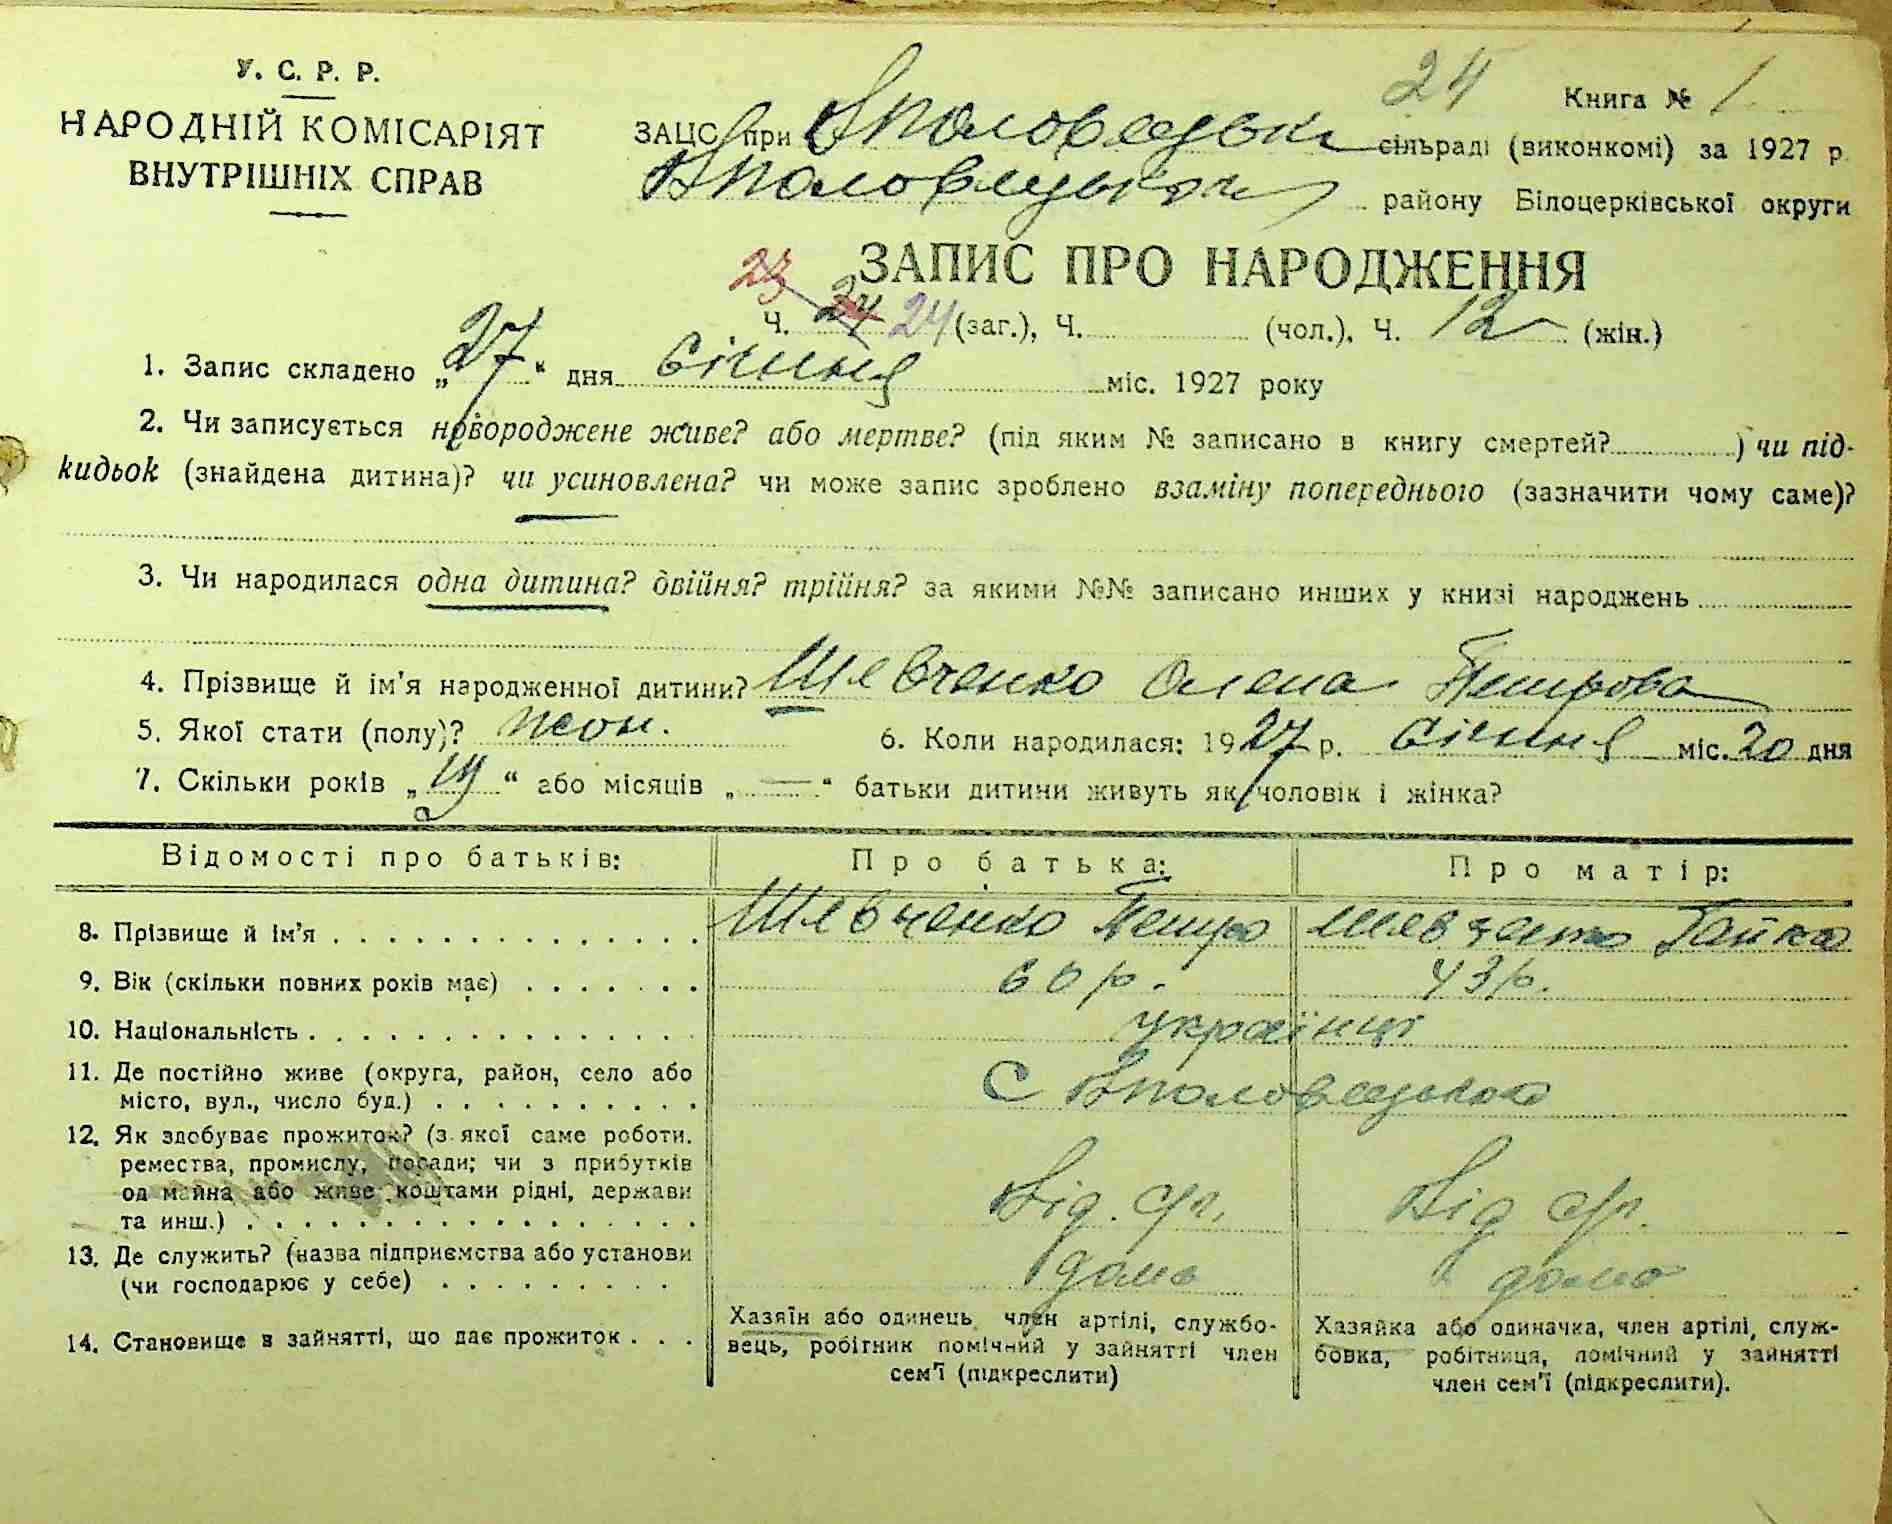 У. С. Р. Р.
НАРОДНІЙ КОМІСАРІЯТ
ВНУТРІШНІХ СПРАВ
24 Книга № 1
ЗАЦС при сільраді (виконкомі) за 1927 р
району Білоцерківської округи
ЗАПИС ПРО НАРОДЖЕННЯ
23
Ч. 24 24 (заг.), Ч. (чол.), Ч. 12 (жін.)
1. Запис складено „27“ дня Січння міс. 1927 року
2. Чи записується новороджене живе? або мертве? (під яким № записано в книгу смертей? ) чи під-
кидьок (знайдена дитина)? чи усиновлена? чи може запис зроблено взаміну попереднього (зазначити чому саме)?
3. Чи народилася одна дитина? двійня? трійня? за якими №№ записано инших у книзі народжень
4. Прізвище й ім’я народженної дитини? Шевченко Олена Петрова
5. Якої стати (полу)? жон. 6. Коли народилася: 1927 р. Січння міс. 20 дня
7. Скільки років „ “ або місяців „—“ батьки дитини живуть як чоловік і жінка?
Відомості про батьків: Про батька: Про матір:
8. Прізвище й ім’я Шевченко Петро Шевченко
9. Вік (скільки повних років має) 60 р. 43 р.
10. Національність українці
11. Де постійно живе (округа, район, село або
місто, вул., число буд.) С
12. Як здобуває прожиток? (з якої саме роботи,
ремества, промислу, посади; чи з прибутків
од майна або живе коштами рідні, держави
та инш.) Від. ср. Від ср.
13. Де служить? (назва підприємства або установи
(чи господарює у себе) дома дома
14. Становище в зайнятті, що дає прожиток
Хазяїн або одинець, член артілі, службо-
вець, робігник помічний у зайнятті член
сем’ї (підкреслити)
Хазяйка або одиначка, член артілі, служ-
бовка, робітниця, помічний у зайнятті
член сем’ї (підкреслити).